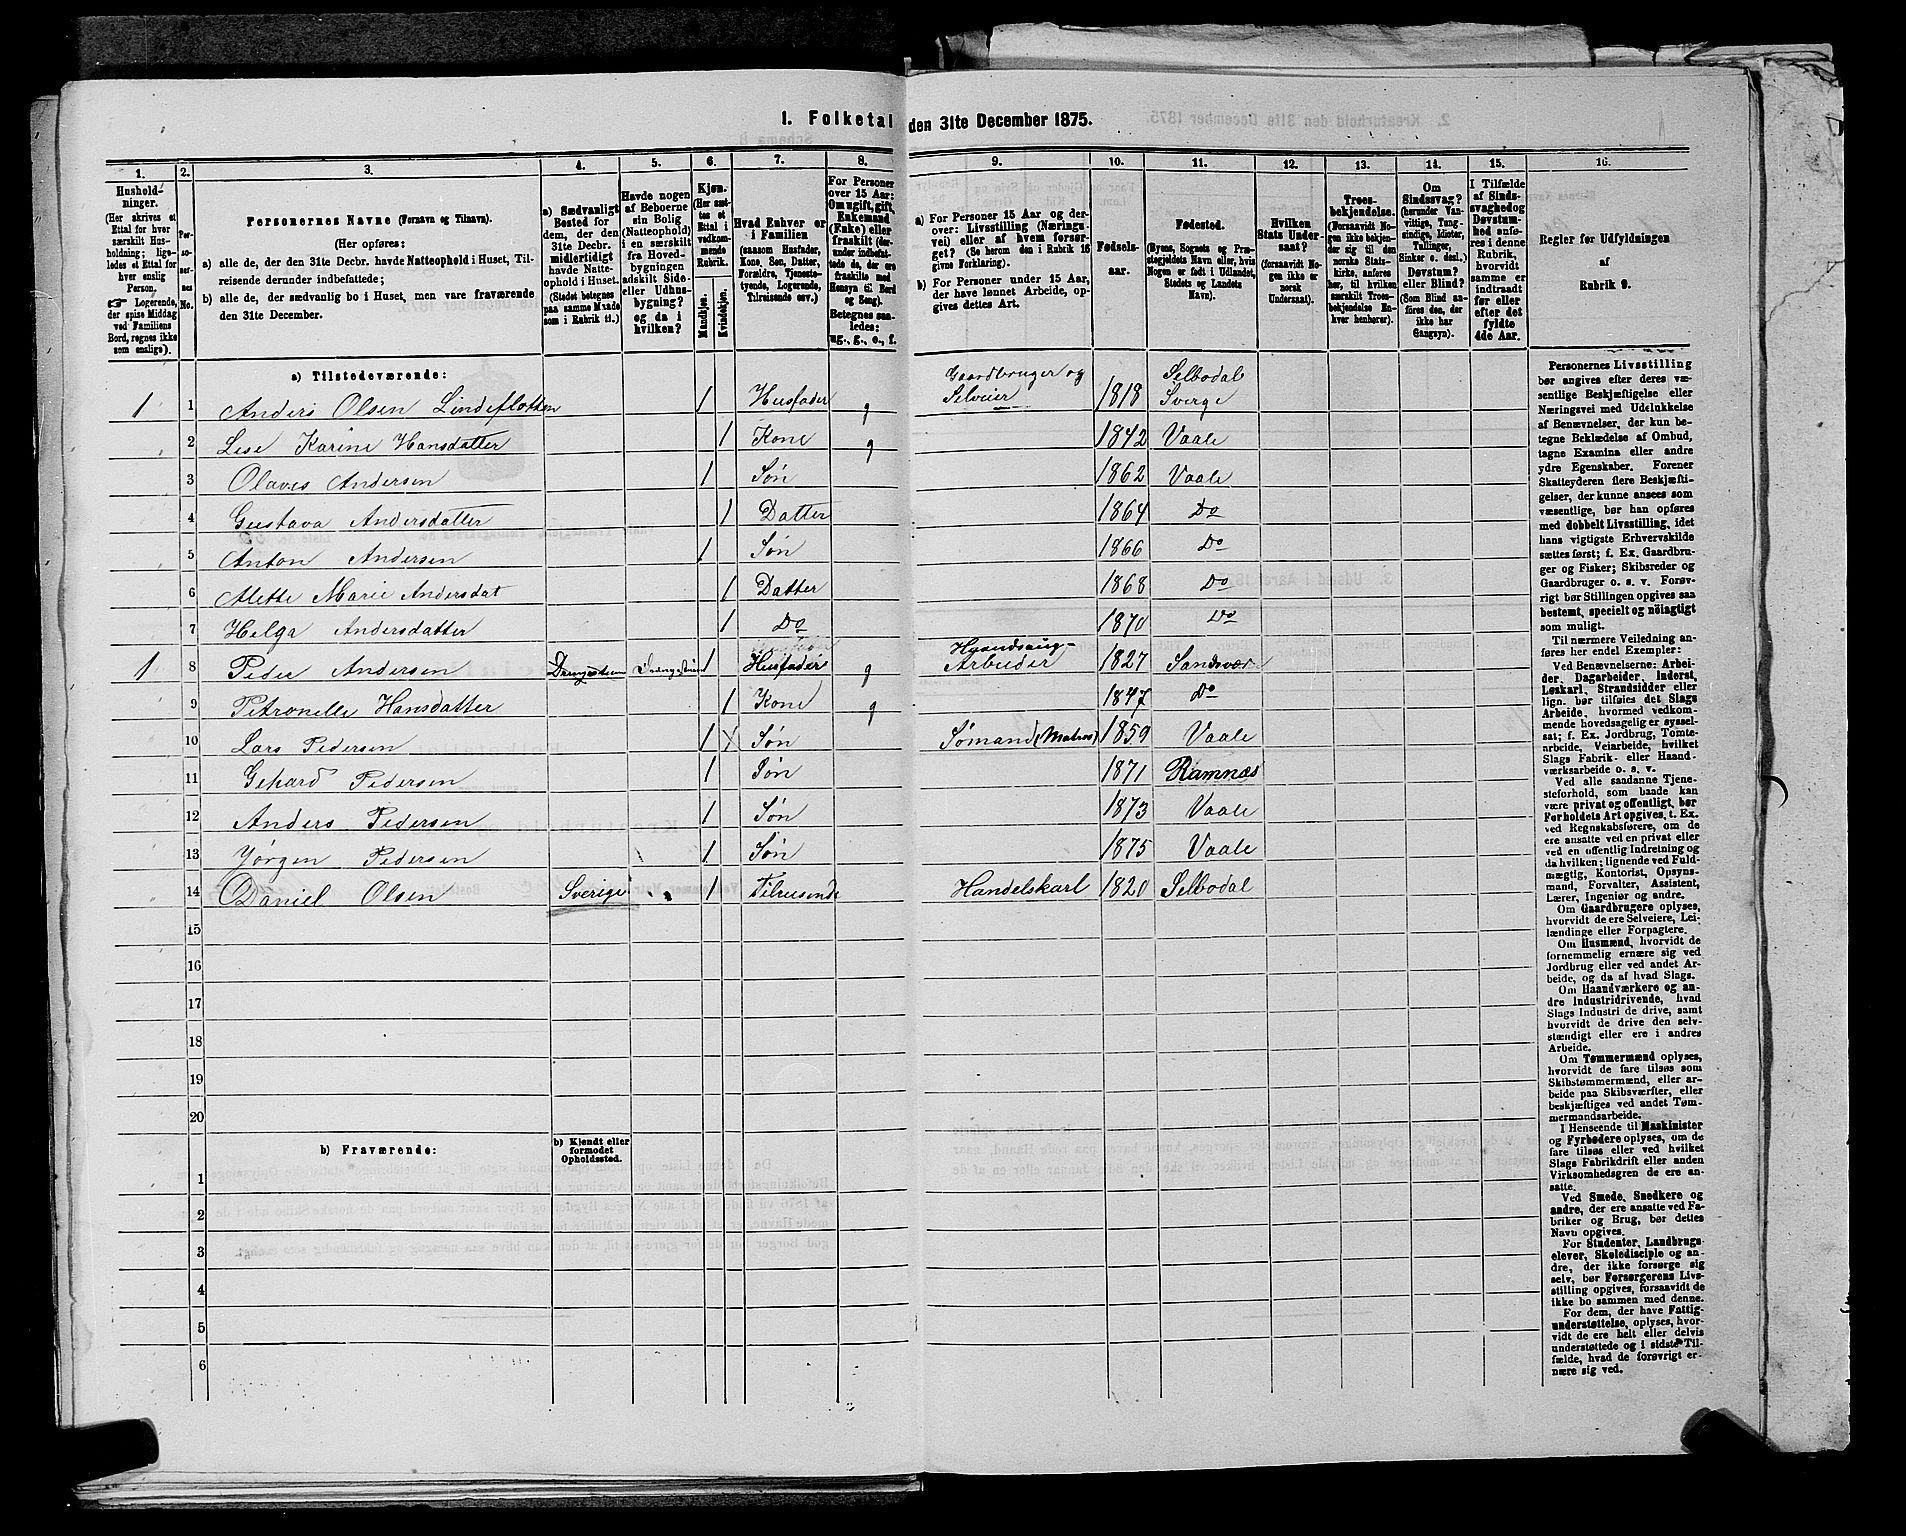 1. Folketal den 31te December 1875.
1. 2. 3. 4. 5. 6. 7. 8. 9. 10. 11. 12. 13. 14. 15. 16.
Hushold-
ninger.
(Her skrives et
Ettal for hver
særskilt Hus-
holdning; lige-
ledes et Ettal for
hver enslig
Person.
☛ Logerende,
der spise Middag
ved Familiens
Bord, regnes ikke
som enslige).
Per-
soner-
nes
No.
Personernes Navne (Fornavn og Tilnavn).
(Her opføres:
a) alle de, der den 31te Decbr. havde Natteophold i Huset, Til-
reisende derunder indbefattede;
b) alle de, der sædvanlig bo i Huset, men vare fraværende
den 31te December.
a) Sædvanligt
Bosted for
dem, der den
31te Decbr.
midlertidigt
havde Natte-
ophold i Huset.
(Stedet betegnes
paa samme Maade
som i Rubrik 11.)
Havde nogen
af Beboerne
sin Bolig
(Natteophold)
i en særskilt
fra Hoved-
bygningen
adskilt Side-
eller Udhus-
bygning?
og da i
hvilken?
Kjøn.
(Her sæt-
tes et
Ettal i
vedkom-
mende
Rubrik.
Mandkjøn.
Kvindekjøn.
Hvad Enhver er
i Familien
(saasom Husfader,
Kone, Søn, Datter,
Forældre, Tjeneste-
tyende, Logerende,
Tilreisende osv.)
For Personer
over 15 Aar:
Om ugift, gift,
Enkemand
(Enke) eller
fraskilt (der-
under indbefat-
tede de, der ere
fraskilte med
Hensyn til Bord
og Seng).
Betegnes saa-
ledes:
ug., g., e., f.
a) For Personer 15 Aar og der-
over: Livsstilling (Nærings-
vei) eller af hvem forsør-
get? (Se herom den i Rubrik 16
givne Forklaring).
b) For Personer under 15 Aar,
der have lønnet Arbeide, op-
gives dettes Art.
Fødsels-
aar.
Fødested.
(Byens, Sognets og Præ-
stegjeldets Navn eller, hvis
Nogen er født i Udlandet,
Stedets og Landets
Navn).
Hvilken
Stats Under-
saat?
(forsaavidt No-
gen ikke er
norsk
Undersaat).
Troes-
bekjendelse.
(Forsaavidt No-
gen ikke bekjen-
der sig til den
norske Stats-
kirke, anføres
her, til hvilken
særskilt Troes-
bekjendelse En-
hver henhører).
Om
Sindssvag?
(herunder Van-
vittige, Tung-
sindige, Idioter,
Tullinger,
Sinker o. desl.)
Døvstum?
eller Blind?
(Som Blind an-
føres den, der
ikke har
Gangsyn).
I Tilfælde
af Sinds-
svaghed og
Døvstum-
hed anfø-
res i denne
Rubrik,
hvorvidt
samme er
indtraadt
før eller
efter det
fyldte
4de Aar.
Regler for Udfyldningen
af
Rubrik 9.
a) Tilstedeværende:
1 1 Anders Olsen Lindeflotten 1 Husfader g Gaardbruger og Selveier 1818 Selbodal Sverge
2 Lese Karine Hansdatter 1 Kone g 1842 Vaale
3 Olaves Andersen 1 Søn 1862 Vaale
4 Gustava Andersdatter 1 Datter 1864 Do
5 Anton Andersen 1 Søn 1866 Do
6 Alette Marie Andersdat 1 Datter 1868 Do
7 Helga Andersdatter 1 Do 1870 Do
1 8 Peder Andersen 1 Husfader g Arbeider 1827 Sandsvær
9 Petronelle Hansdatter 1 Kone g 1847 Do
10 Lars Pedersen 1 Søn Sømand (Matros) 1859 Vaale
11 Gehard Pedersen 1 Søn 1871 Ramnæs
12 Anders Pedersen 1 Søn 1873 Vaale
13 Jørgen Pedersen 1 Søn 1875 Vaale
14 Daniel Olsen Sverige 1 Tilreisende Handelskarl 1820 Selbodal
15
16
17
18
19
20
b) Fraværende:
b) Kjendt eller
formodet
Opholdssted.
1
2
3
4
5
6
Personernes Livsstilling
bør angives efter deres væ-
sentlige Beskjæftigelse eller
Næringsvei med Udelukkelse
af Benævnelser, der kun be-
tegne Beklædelse af Ombud,
tagne Examina eller andre
ydre Egenskaber. Forener
Skatteyderen flere Beskjæfti-
gelser, der kunne ansees som
væsentlige, bør han opføres
med dobbelt Livsstilling, idet
hans vigtigste Erhvervskilde
sættes først; f. Ex. Gaardbru-
ger og Fisker; Skibsreder og
Gaardbruger o. s. v. Forøv-
rigt bør Stillingen opgives saa
bestemt, specielt og nöiagtigt
som muligt.
Til nærmere Veiledning an-
føres her endel Exempler:
Ved Benævnelserne: Arbei-
der, Dagarbeider, Inderst,
Løskarl, Strandsidder eller
lign. bør tilføies det Slags
Arbeide, hvormed vedkom-
mende hovedsagelig er syssel-
sat; f. Ex. Jordbrug, Tomte-
arbeide, Veiarbeide, hvilket
Slags Fabrik- eller Haand-
værksarbeide o. s. v.
Ved alle saadanne Tjene-
steforhold, som baade kan
være privat og offentligt, bør
Forholdets Art opgives, t. Ex.
ved Regnskabsførere, om de
ere ansatte ved en privat eller
ved en offentlig Indretning og
da hvilken; lignende ved Fuld-
mægtig, Kontorist, Opsyns-
mand, Forvalter, Assistent,
Lærer, Ingeniør og andre.
Om Gaardbrugere oplyses,
hvorvidt de ere Selveiere, Lei-
lændinge eller Forpagtere.
Om Husmænd, hvorvidt de
fornemmelig ernære sig ved
Jordbrug eller ved andet Ar-
beide, og da af hvad Slags.
Om Haandværkere og an-
dre Industridrivende, hvad
Slags Industri de drive, samt
hvorvidt de drive den selv-
stændigt eller ere i andres
Arbeide.
Om Tømmermænd oplyses,
hvorvidt de fare tilsøs som
Skibstømmermænd, eller ar-
beide paa Skibsværfter, eller
beskjæftiges ved andet Tøm-
mermandsarbeide.
I Henseende til Maskinister
og Fyrbødere oplyses, om de
fare tilsøs eller ved hvilket
Slags Fabrikdrift eller anden
Virksomhedsgren de ere an-
satte.
Ved Smede, Snedkere og
andre, der ere ansatte ved Fa-
briker og Brug, bør dettes
Navn opgives.
For Studenter, Landbrugs-
elever, Skoledisciple og an-
dre, der ikke forsørge sig
selv, bør Forsørgerens Livs-
stilling opgives, forsaavidt de
ikke bo sammen med denne.
For dem, der have Fattig-
understøttelse, oplyses, hvor-
vidt de ere helt eller delvis
understøttede og i sidste Til-
fælde, hvad de forøvrigt er-
nære sig ved.